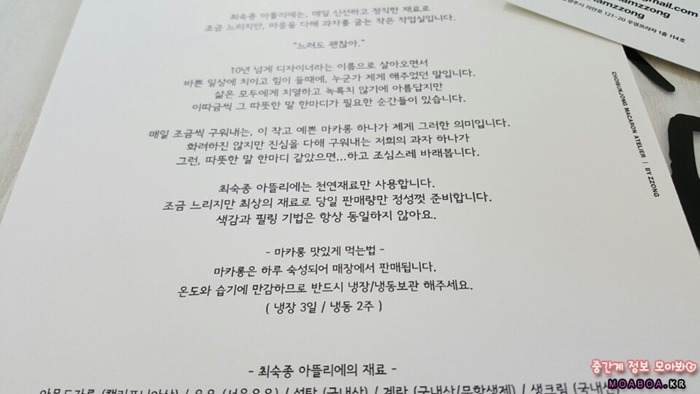 최숙종 아뜰리에는, 매일 신선하고 정직한 재료로
조금 느리지만, 마음을 다해 과자를 굽는 작은 작업실입니다.
"느려도 괜찮아."
10년 넘게 디자이너라는 이름으로 살아오면서
바쁜 일상에 치이고 힘이 들때에, 누군가 제게 해주었던 말입니다.
삶은 모두에게 치열하고 녹록치 않기에 아름답지만
이따금씩 그 따뜻한 말 한마디가 필요한 순간들이 있습니다.
매일 조금씩 구워내는, 이 작고 예쁜 마카롱 하나가 제게 그러한 의미입니다.
화려하진 않지만 진심을 다해 구워내는 저희의 과자 하나가
그런, 따뜻한 말 한마디 같았으면...하고 조심스레 바래봅니다.
최숙종 아뜰리에는 천연재료만 사용합니다.
조금 느리지만 최상의 재료로 당일 판매량만 정성껏 준비합니다.
색감과 필링 기법은 항상 동일하지 않아요.
- 마카롱 맛있게 먹는법 -
마카롱은 하루 숙성되어 매장에서 판매됩니다.
온도와 습기에 민감하므로 반드시 냉장/냉동보관 해주세요.
( 냉장 3일 / 냉동 2주 )
- 최숙종 아뜰리에의 재료 -
아몬드가루 (캘리포니아산) / 우유 (서울우유) / 설탕 (국내산) / 계란 (국내산/무항생제) / 생크림 (국내산)
121-20
1층 114호
MACARON ATELIER | BY ZZONG
중간계 정보 모아봐
MOABOA.KR